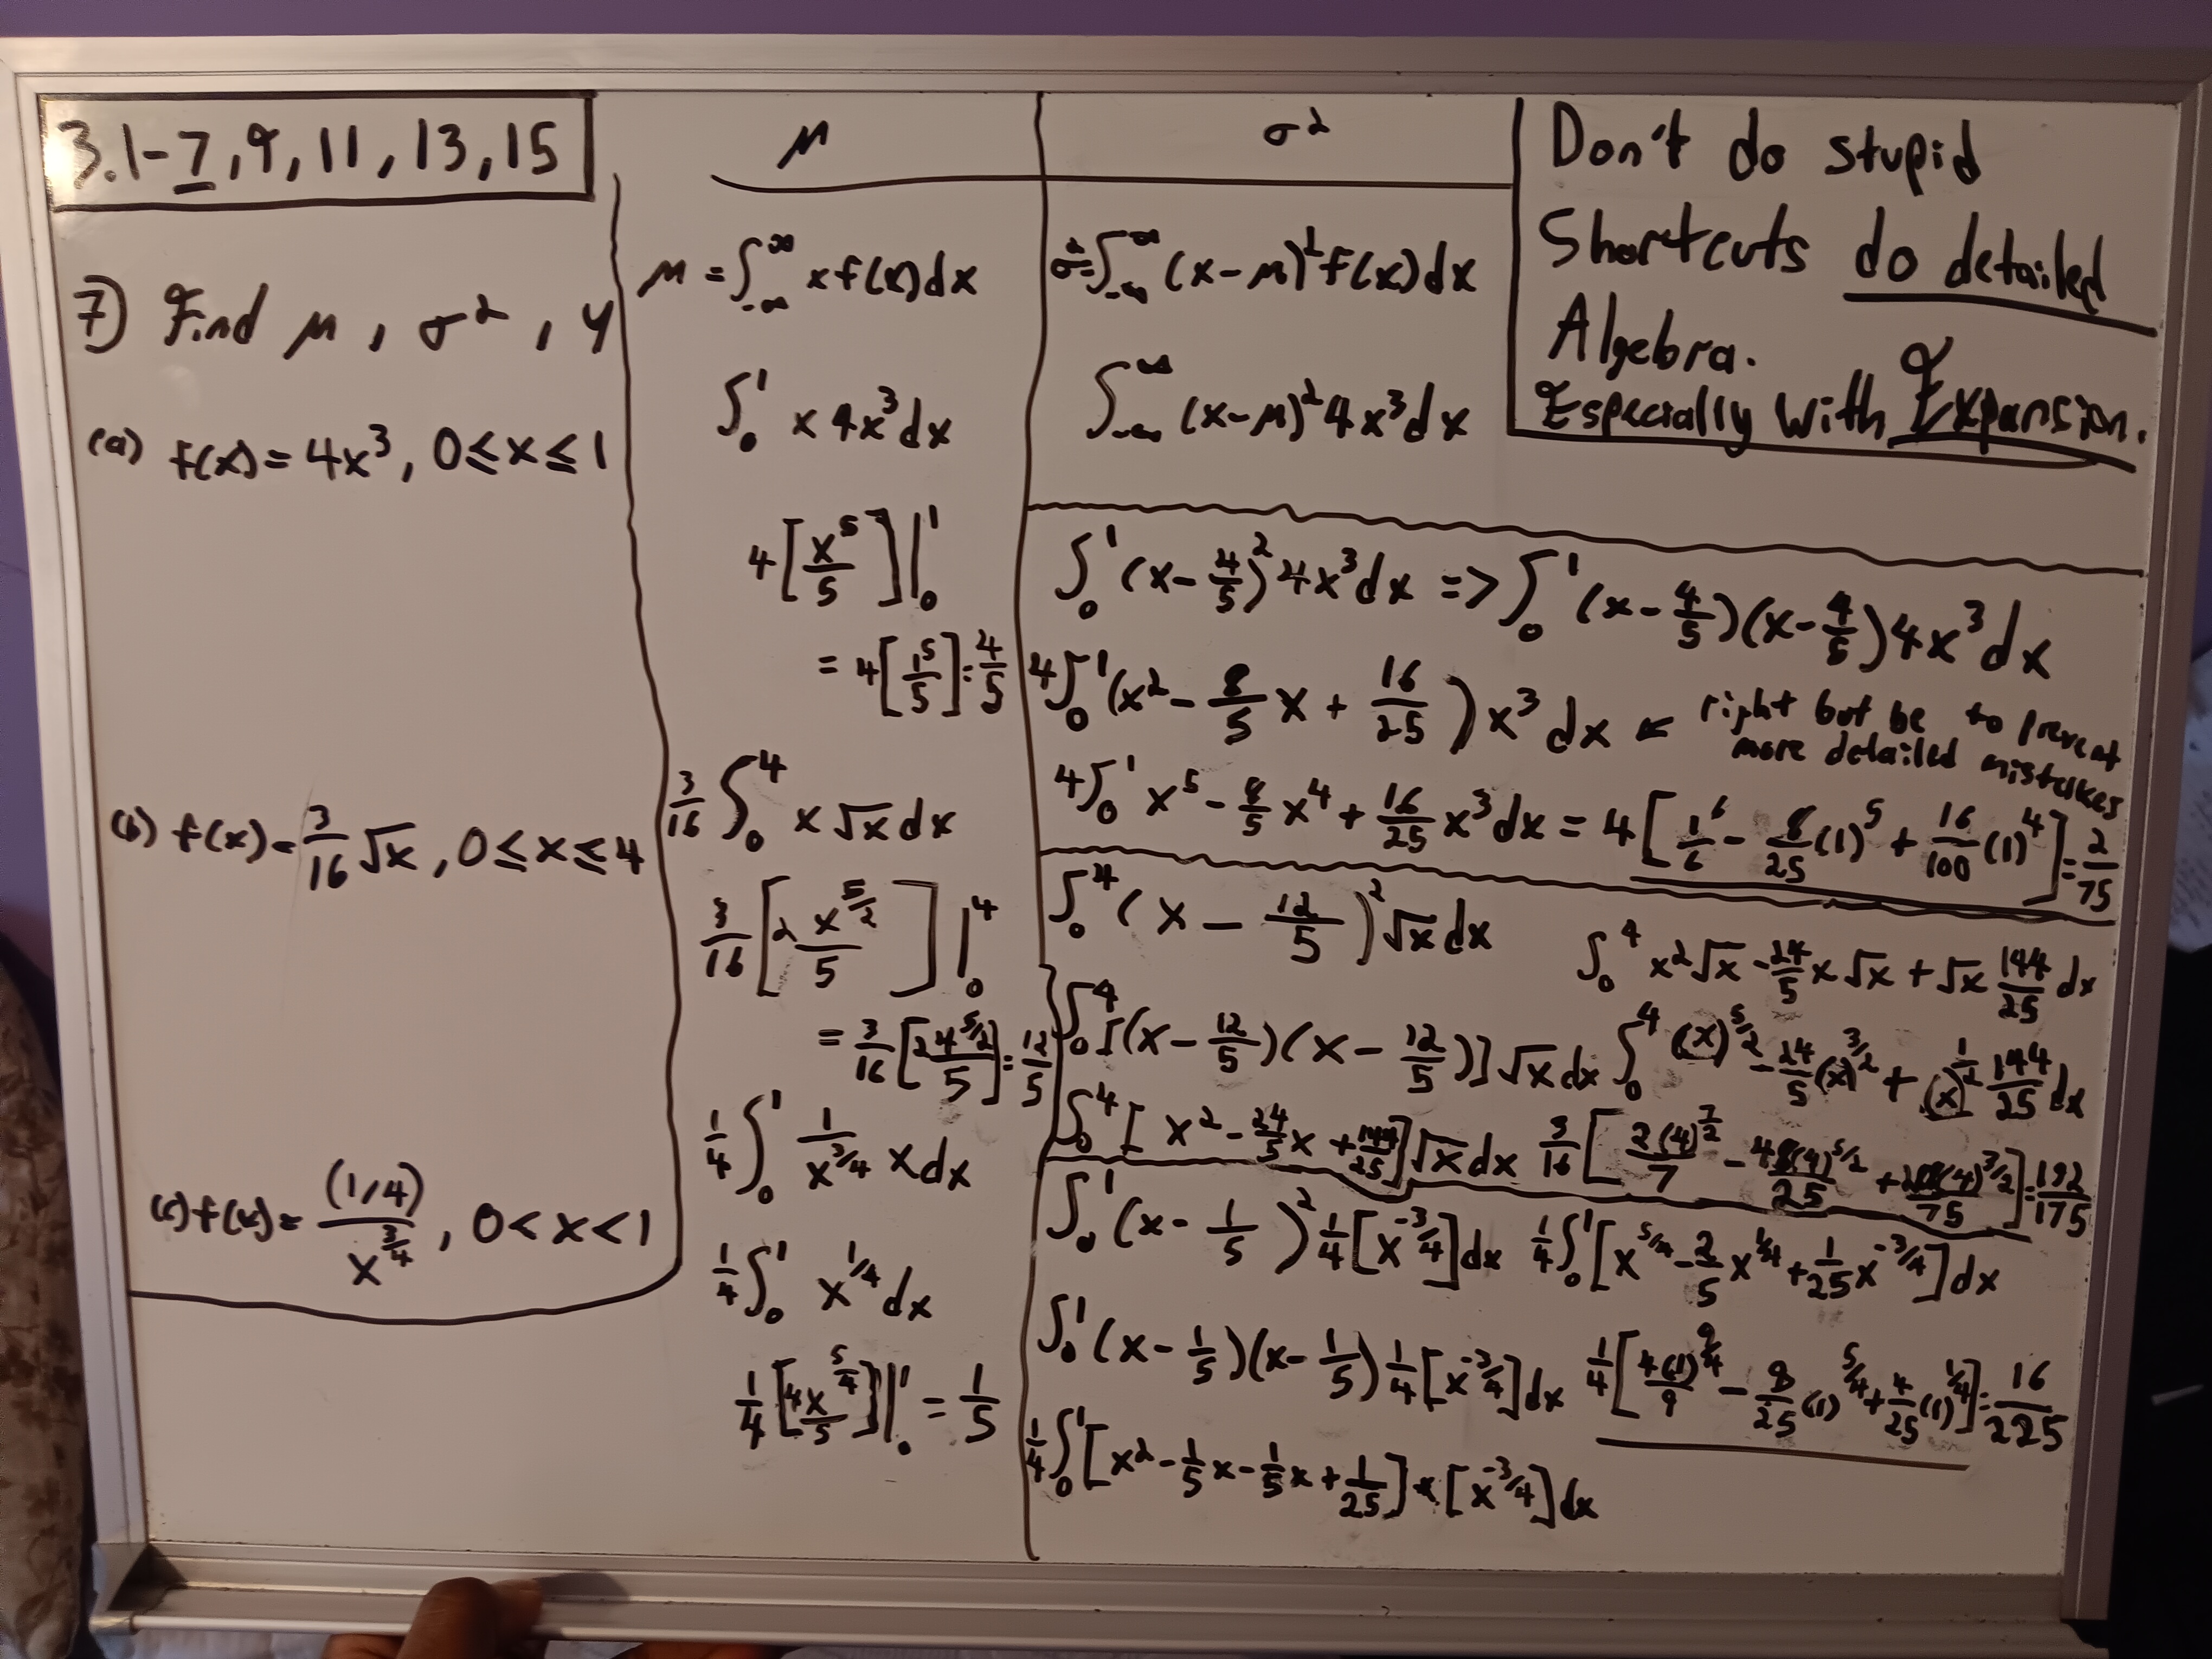 3.1-7, 9, 11, 13, 15
7) Find μ, σ², γ
(a) f(x) = 4x³, 0 ≤ x ≤ 1
(b) f(x) = 3/16 √x, 0 ≤ x ≤ 4
(c) f(x) = (1/4)/x^(3/4), 0 < x < 1
μ
μ = ∫_{-∞}^{∞} x f(x) dx
∫_0^1 x 4x³ dx
4[x⁵/5]|_0^1
= 4[1⁵/5] = 4/5
3/16 ∫_0^4 x √x dx
3/16 [2 x^(5/2)/5]|_0^4
= 3/16 [2 4^(5/2)/5] = 12/5
1/4 ∫_0^1 1/x^(3/4) x dx
1/4 ∫_0^1 x^(1/4) dx
1/4 [4x^(5/4)/5]|_0^1 = 1/5
σ²
σ² = ∫_{-∞}^{∞} (x-μ)² f(x) dx
∫_{-∞}^{∞} (x-μ)² 4x³ dx
Don't do stupid
Shortcuts do detailed
Algebra.
Especially with Expansion.
∫_0^1 (x - 4/5)² 4x³ dx => ∫_0^1 (x - 4/5)(x - 4/5) 4x³ dx
4∫_0^1 (x² - 8/5 x + 16/25) x³ dx ← right but be more detailed to prevent mistakes
4∫_0^1 x⁵ - 8/5 x⁴ + 16/25 x³ dx = 4[1⁶/6 - 8/25 (1)⁵ + 16/100 (1)⁴] = 2/75
∫_0^4 (x - 12/5)² √x dx
∫_0^4 [(x - 12/5)(x - 12/5)] √x dx
∫_0^4 [x² - 24/5 x + 144/25] √x dx
∫_0^4 x²√x - 24/5 x√x + √x 144/25 dx
∫_0^4 (x)^(5/2) - 24/5 (x)^(3/2) + (x)^(1/2) 144/25 dx
3/16 [2(4)^(7/2)/7 - 48(4)^(5/2)/25 + (4)^(3/2)/75] = 192/175
∫_0^1 (x - 1/5)² 1/4 [x^(-3/4)] dx
∫_0^1 (x - 1/5)(x - 1/5) 1/4 [x^(-3/4)] dx
1/4 ∫_0^1 [x² - 1/5 x - 1/5 x + 1/25] * [x^(-3/4)] dx
1/4 ∫_0^1 [x^(5/4) - 2/5 x^(1/4) + 1/25 x^(-3/4)] dx
1/4 [4(1)^(9/4)/9 - 8/25 (1)^(5/4) + 4/25 (1)^(1/4)] = 16/225